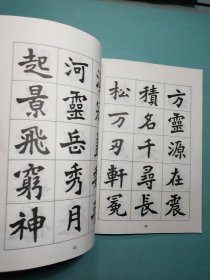 方靈源在震
積名千尋長
松万刃軒冕
河靈岳秀月
起景飛窮神